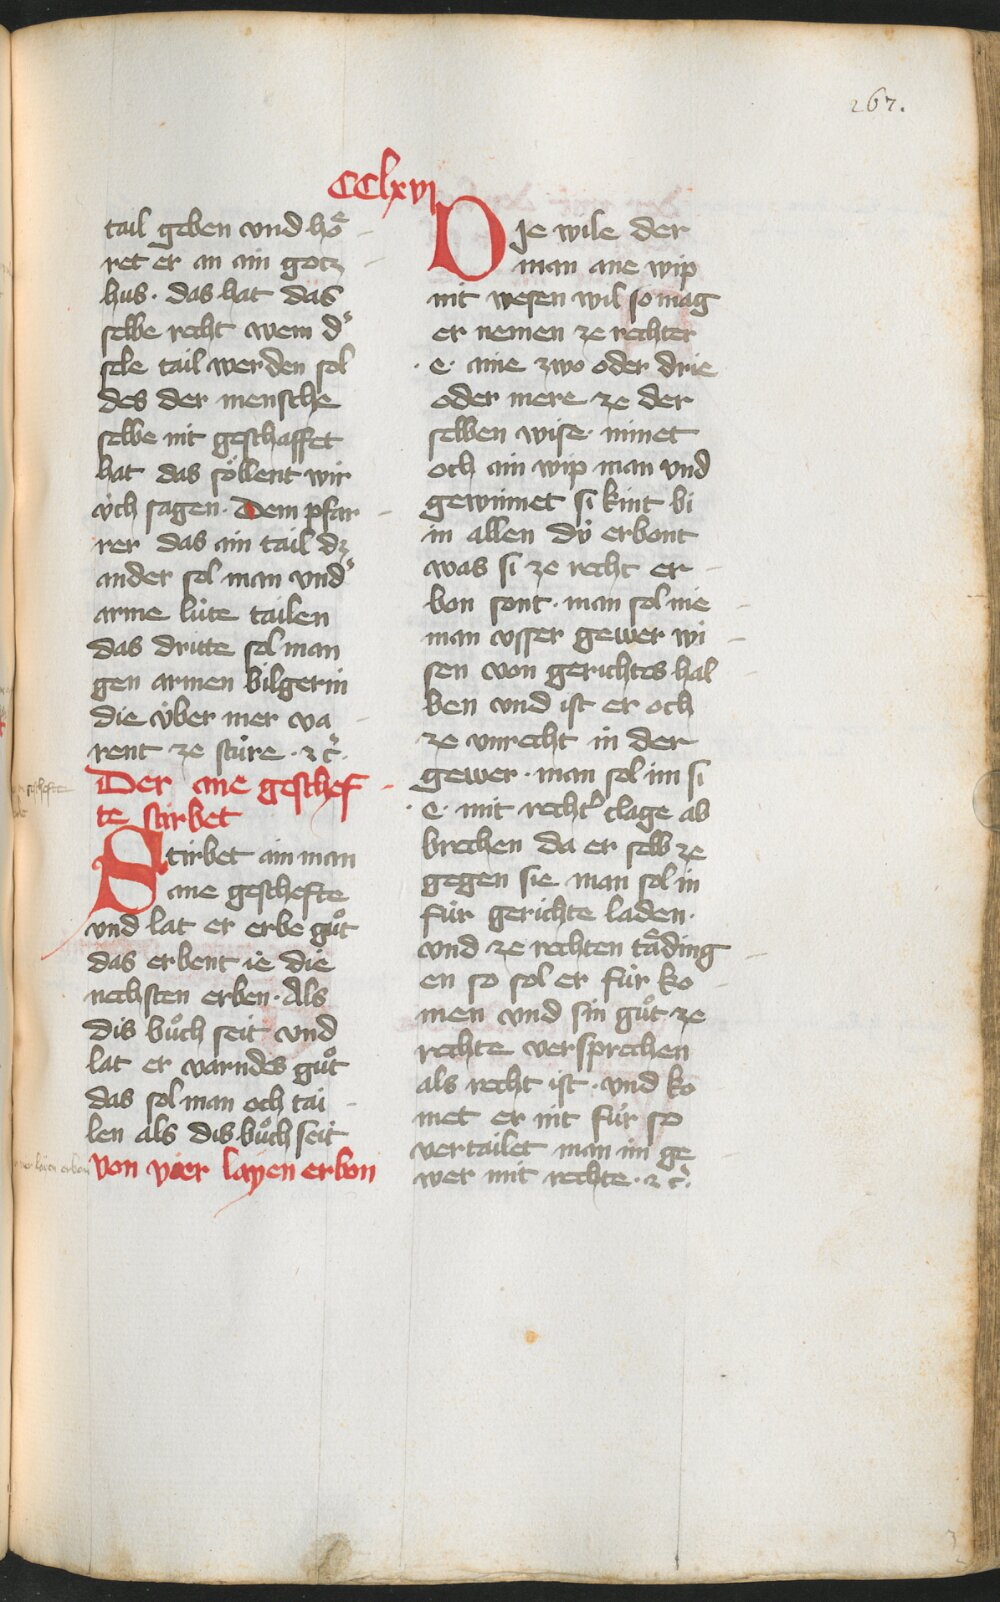 267.
CClxvi
tail geben vnd hoͤ
ret er an ain gotz
hus · das hat das
selbe recht wem dˢ
sele tail werden sol
des der mensche
selbe nit geschaffet
hat das soͤllent wir
v̈ch sagen · Dem pfar
rer das ain tail dz
ander sol man vndˢ
arme lúte tailen
das dritte sol man
gen armen bilgerin
die v́ber mer va
rent ze stúre · ⁊ c̃
Der ane geschef
te stirbet
Stirbet ain man
ane geschefte
vnd lat er erbe guͦt
das erbent ie die
nechsten erben · Als
dis buͦch seit vnd
lat er varndes guͦt
das sol man och tai
len als dis buͦch seit
von vier layen erbon
DJe wile der
man ane wip
nit wesen wil so mag
er nemen ze rechter
· e · aine zwo oder drie
oder mere ze der
selben wise · nimet
och ain wip man vnd
gewinnet si kint bi
in allen dú erbont
was si ze recht er
bon sont · man sol nie
man vsser gewer wi
sen von gerichtes hal
ben vnd ist er och
ze vnrecht in der
gewer · man sol im si
· e · mit rechtˀ clage ab
brechen da er selb ze
gegen sie man sol in
fúr gerichte laden ·
vnd ze rechten taͤding
en so sol er fúr ko
men vnd sin guͦt ze
rechte versprechen
als recht ist · vnd ko
met er nit fúr so
vertailet man im ge
wer mit rechte · ⁊ c̃ ·